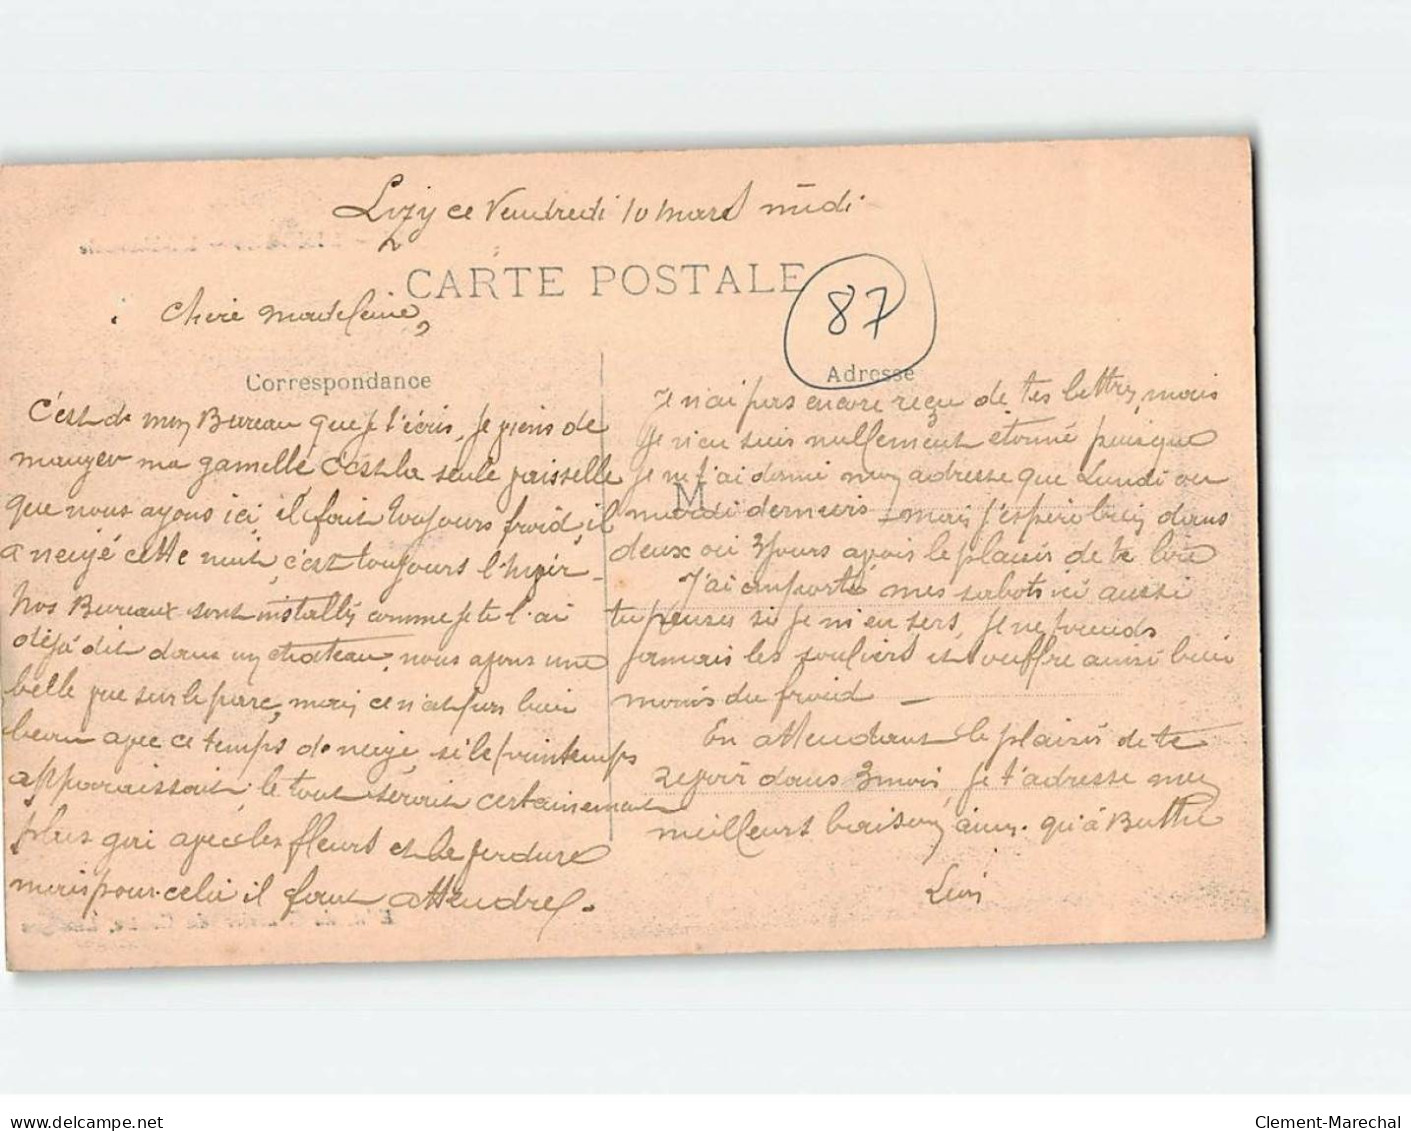 Lizy ce Vendredi 10 Mars midi
CARTE POSTALE
87
Chère Madeleine,
Correspondance
C'est de mon Bureau que je t'écris, je viens de
manger ma gamelle, c'est la seule vaisselle
que nous ayons ici, il fait toujours froid, il
a neigé cette nuit, c'est toujours l'hiver -
Nos Bureaux sont installés comme je te l'ai
déjà dit dans un chateau, nous avons une
belle vue sur le parc, mais ce n'est pas bien
beau avec ce temps de neige, si le printemps
apparaissait, le tout serait certainement
plus gai avec les fleurs et la verdure
mais pour celui il faut attendre.
Adresse
M
Je n'ai pas encore reçu de tes lettres, mais
je n'en suis nullement étonné puisque
je ne t'ai donné mon adresse que Lundi ou
mardi derniers - mais j'espère bien dans
deux ou 3 jours avoir le plaisir de te lire
J'ai emporté mes sabots ici aussi
tu penses si je m'en sers, je ne prends
jamais les souliers et souffre ainsi bien
moins du froid -
En attendant le plaisir de te
revoir dans 3 mois, je t'adresse mes
meilleurs baisers, ainsi qu'à